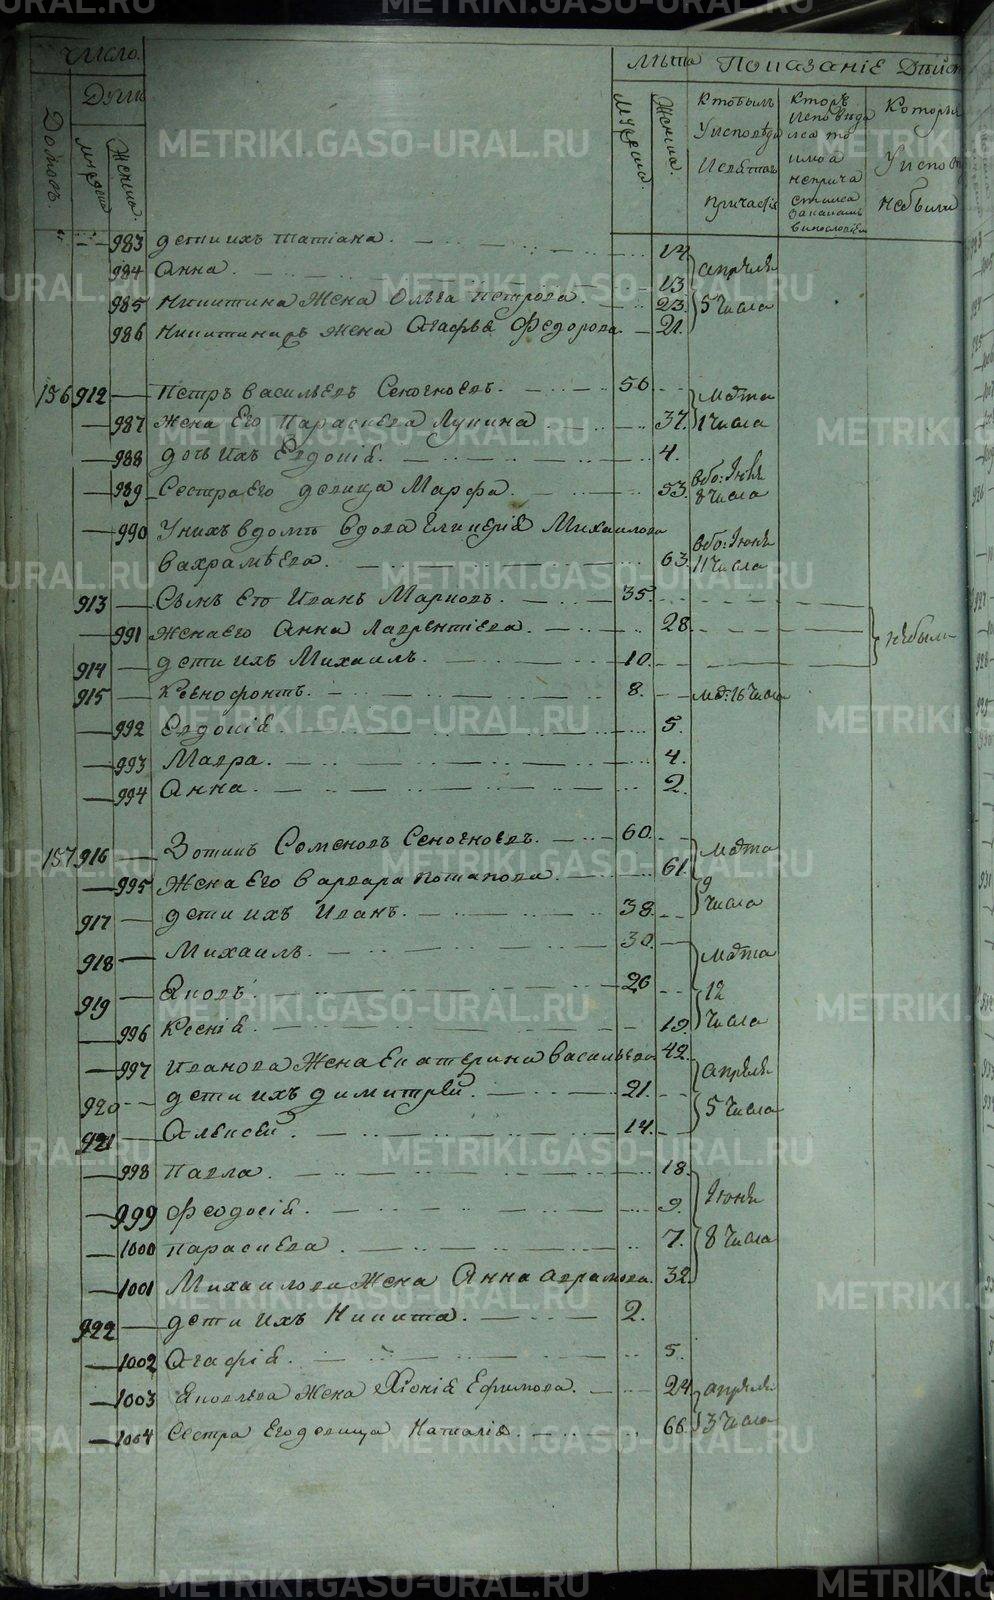 METRIKI.GASO-URAL.RU
Число.
Домовъ.
Душъ
мужска
Женска.
Лѣта
Показаніе Дѣйст
Мужска.
Женска.
Ктобылъ
Уисповѣда
Исвятаго
Причастія
Кто
исповѣда
лся то
непричастился
Которыя
Уиспо
небыли
983 дети ихъ Татіана. 14.
984 Анна. 13.
985 Никитина Жена Ольга Петрова. 23.
986 жена Агафья Федорова 21.
апрѣля 5 числа
156 912 Петръ Васильевъ Сеногноевъ. 50.
987 жена Его Параскева Лукина 37.
марта 1 числа
988 дочь ихъ Евдокія. 4.
989 Сестра Его девица Марфа. 53.
8 числа
990 У нихъ вдомѣ вдова Гликерія Михаилова
Вахрамѣева. 63.
11 числа
913 Сынъ Его Иванъ Марковъ. 35.
991 жена Его Анна Лаврентіева. 28.
914 дети ихъ Михаилъ. 10.
небыли
915 Ксенофонтъ. 8. 16 числа
992 Евдокія 5.
993 Мавра. 4.
994 Анна. 2.
157 916 Зотикъ Семеновъ Сеногноевъ. 60.
995 Жена Его Варвара Потапова. 61.
917 дети ихъ Иванъ. 38.
марта 9 числа
918 Михаилъ. 30.
919 Яковъ. 26
996 Ксенія. 19.
марта 12 числа
997 Иванова Жена Екатерина Васильева 42.
920 дети ихъ Димитрей. 21.
921 Алексей. 14.
апрѣля 5 числа
998 Павла. 18.
999 Феодосія. 9.
1000 Параскева. 7.
1001 Михаилова Жена Анна Аврамова. 32.
Іюня 8 числа
922 дети ихъ Никита. 2.
1002 Агафія. 5.
1003 Яковлева Жена Хіонія Ефимова. 24
1004 Сестра Его девица Наталія. 66.
апрѣля 3 числа